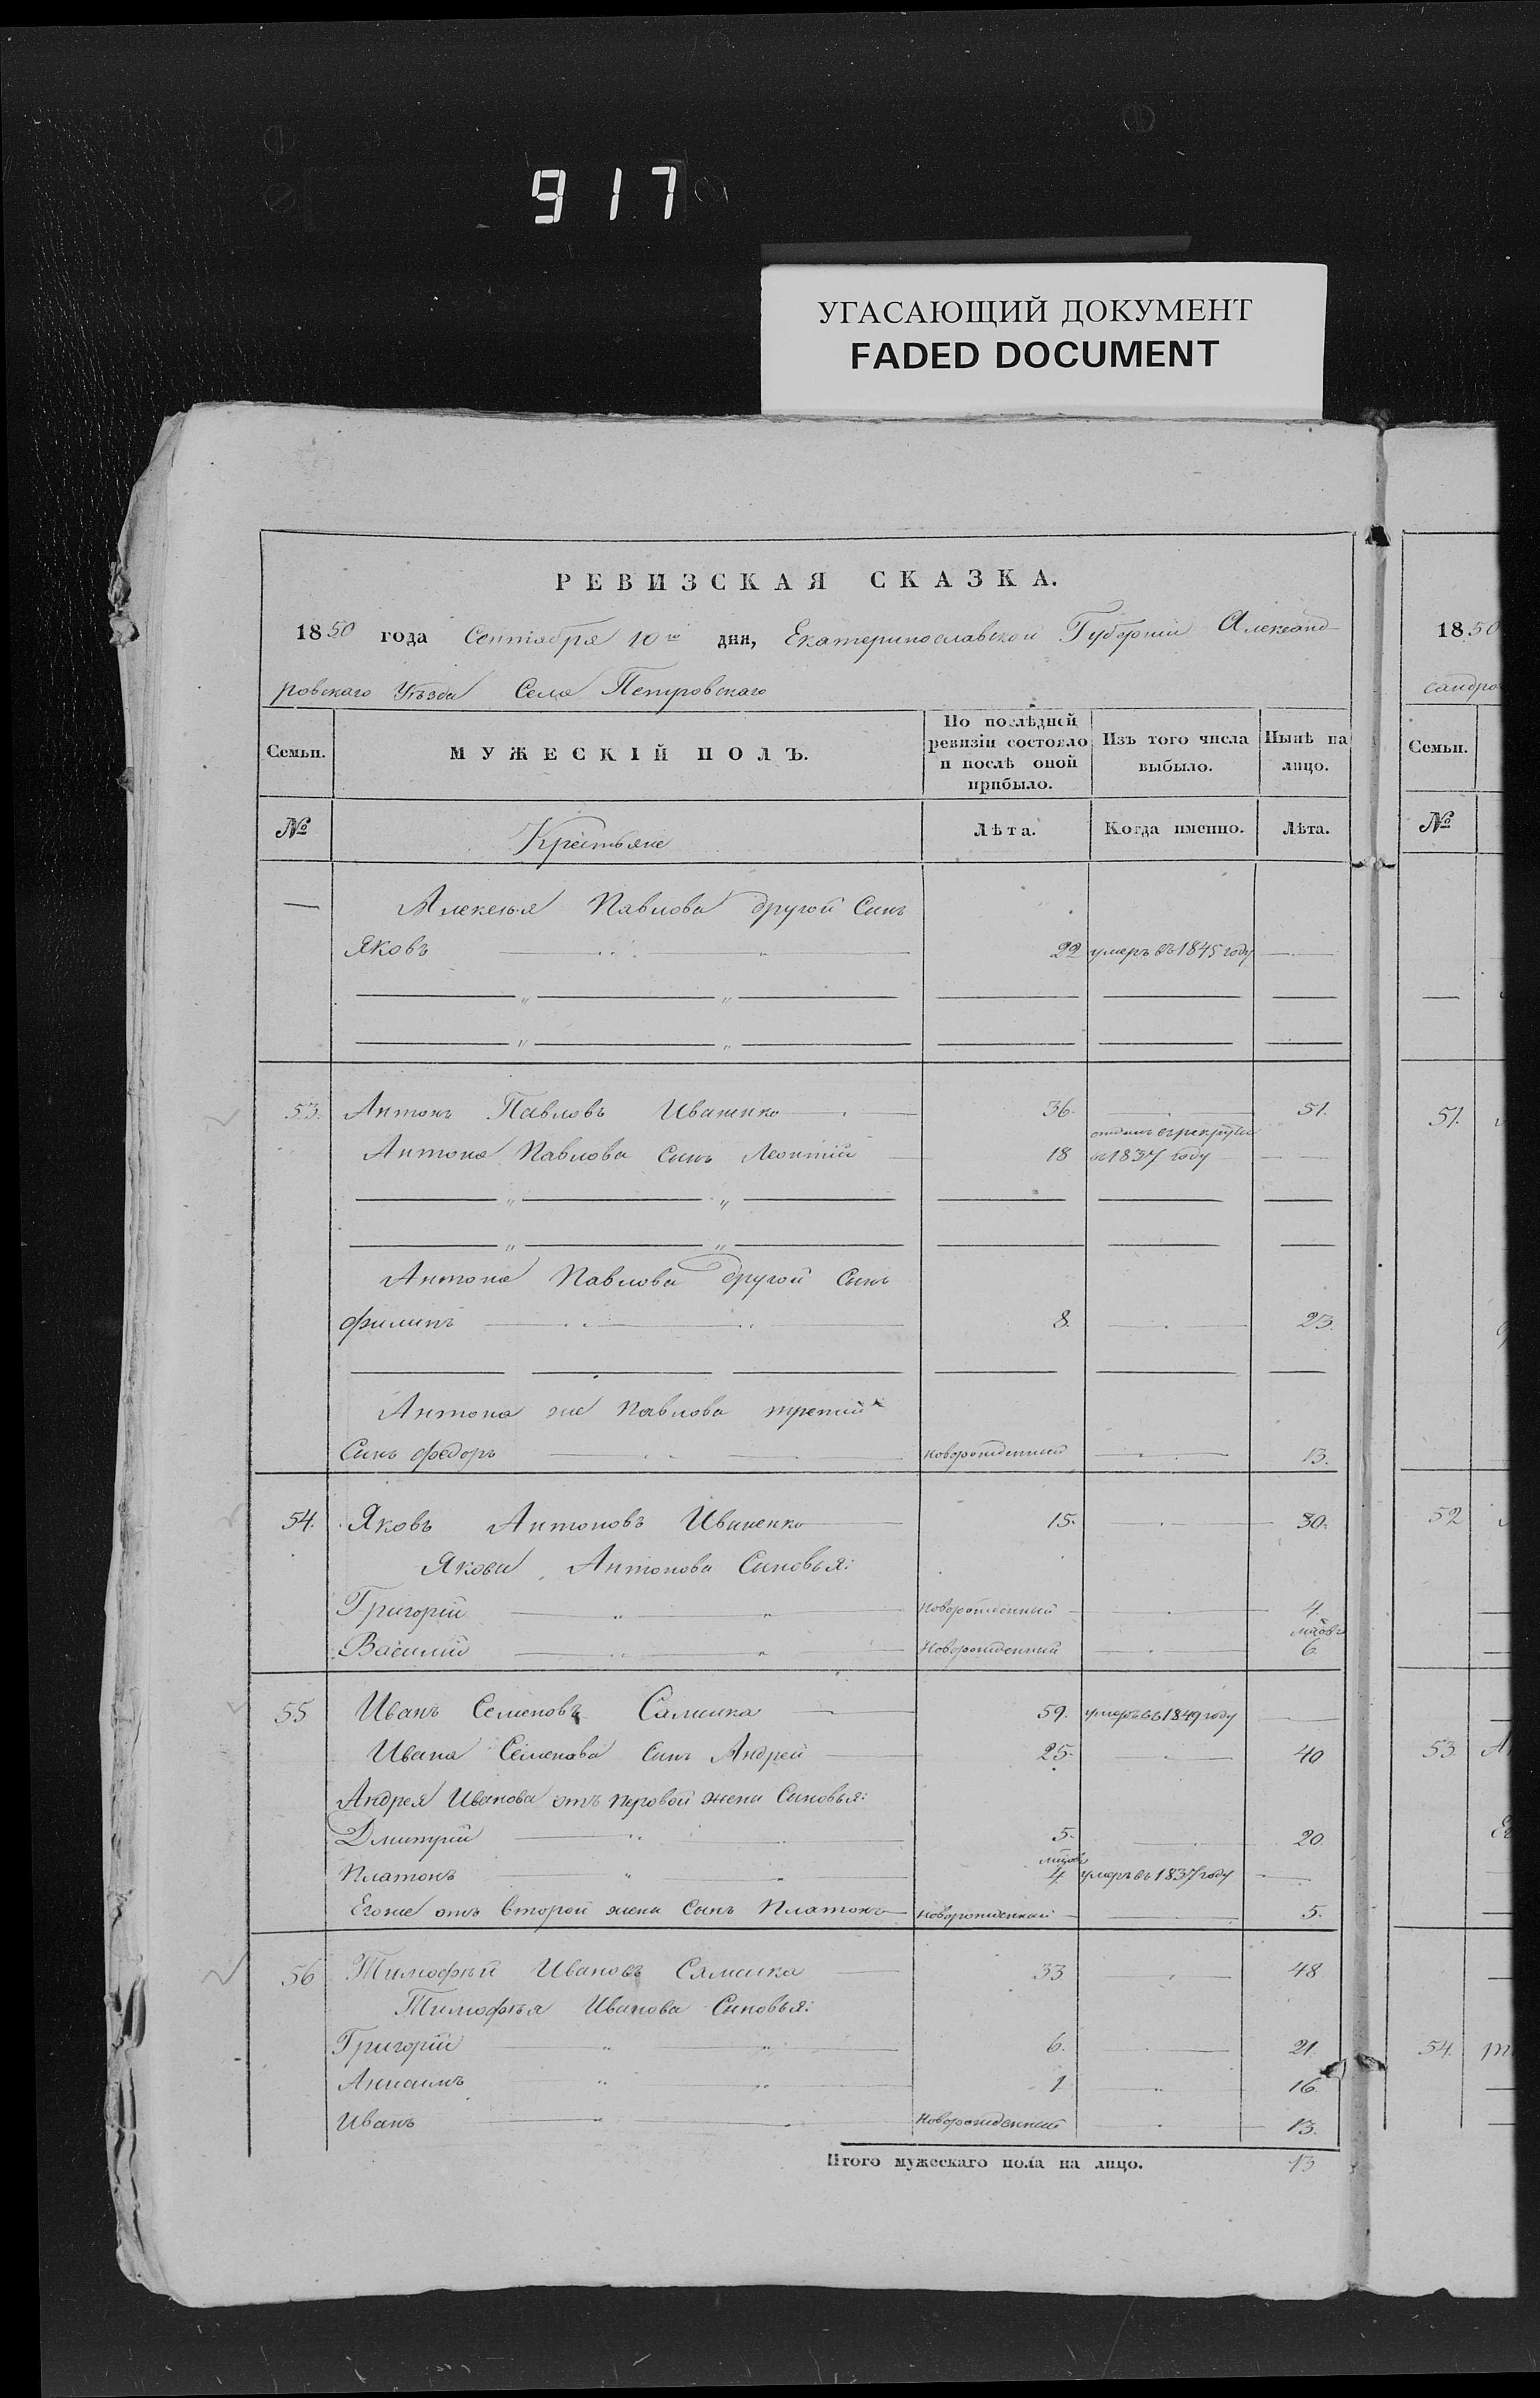 917
УГАСАЮЩИЙ ДОКУМЕНТ
FADED DOCUMENT
РЕВИЗСКАЯ СКАЗКА.
1850 года Сентября 10го дня, Екатеринославской Губернии Александ-
ровскаго Уѣзда Села Петровскаго
Семьи. МУЖЕСКІЙ ПОЛЪ. По послѣдней ревизіи состояло и послѣ оной прибыло. Изъ того числа выбыло. Нынѣ на лицо.
№ Крестьяне Лѣта. Когда именно. Лѣта.
Алексѣя Павлова другой Сынъ
Яковъ 22 умеръ въ 1845 году
53. Антонъ Павловъ Иваненко 36. 51.
Антона Павлова сынъ Леонтій 18 отданъ въ рекруты въ 1837 году
Антона Павлова другой Сынъ
Филипъ 8. 23.
Антона же Павлова третій
Сынъ Федоръ новорожденный 13.
54. Яковъ Антоновъ Иваненко 15. 30.
Якова Антонова Сыновья:
Григорій новорожденный 4.
Василій Новорожденный мѣсяцовъ 6
55 Иванъ Семеновъ 59. умеръ въ 1849 году
Ивана Семенова Сынъ Андрей 25. 40
Андрея Иванова отъ первой жены Сыновья:
Дмитрій 5. 20.
Платонъ мѣсяцовъ 4 умеръ въ 1837 году
Его же отъ второй жены Сынъ Платонъ новорожденный 5.
56 Тимофѣй Ивановъ 33 48
Тимофѣя Иванова Сыновья:
Григорій 6. 21.
1 16.
Иванъ Новорожденный 13.
Итого мужескаго пола на лицо. 13
1850
сандро
Семьи.
№
51.
52
53
54.